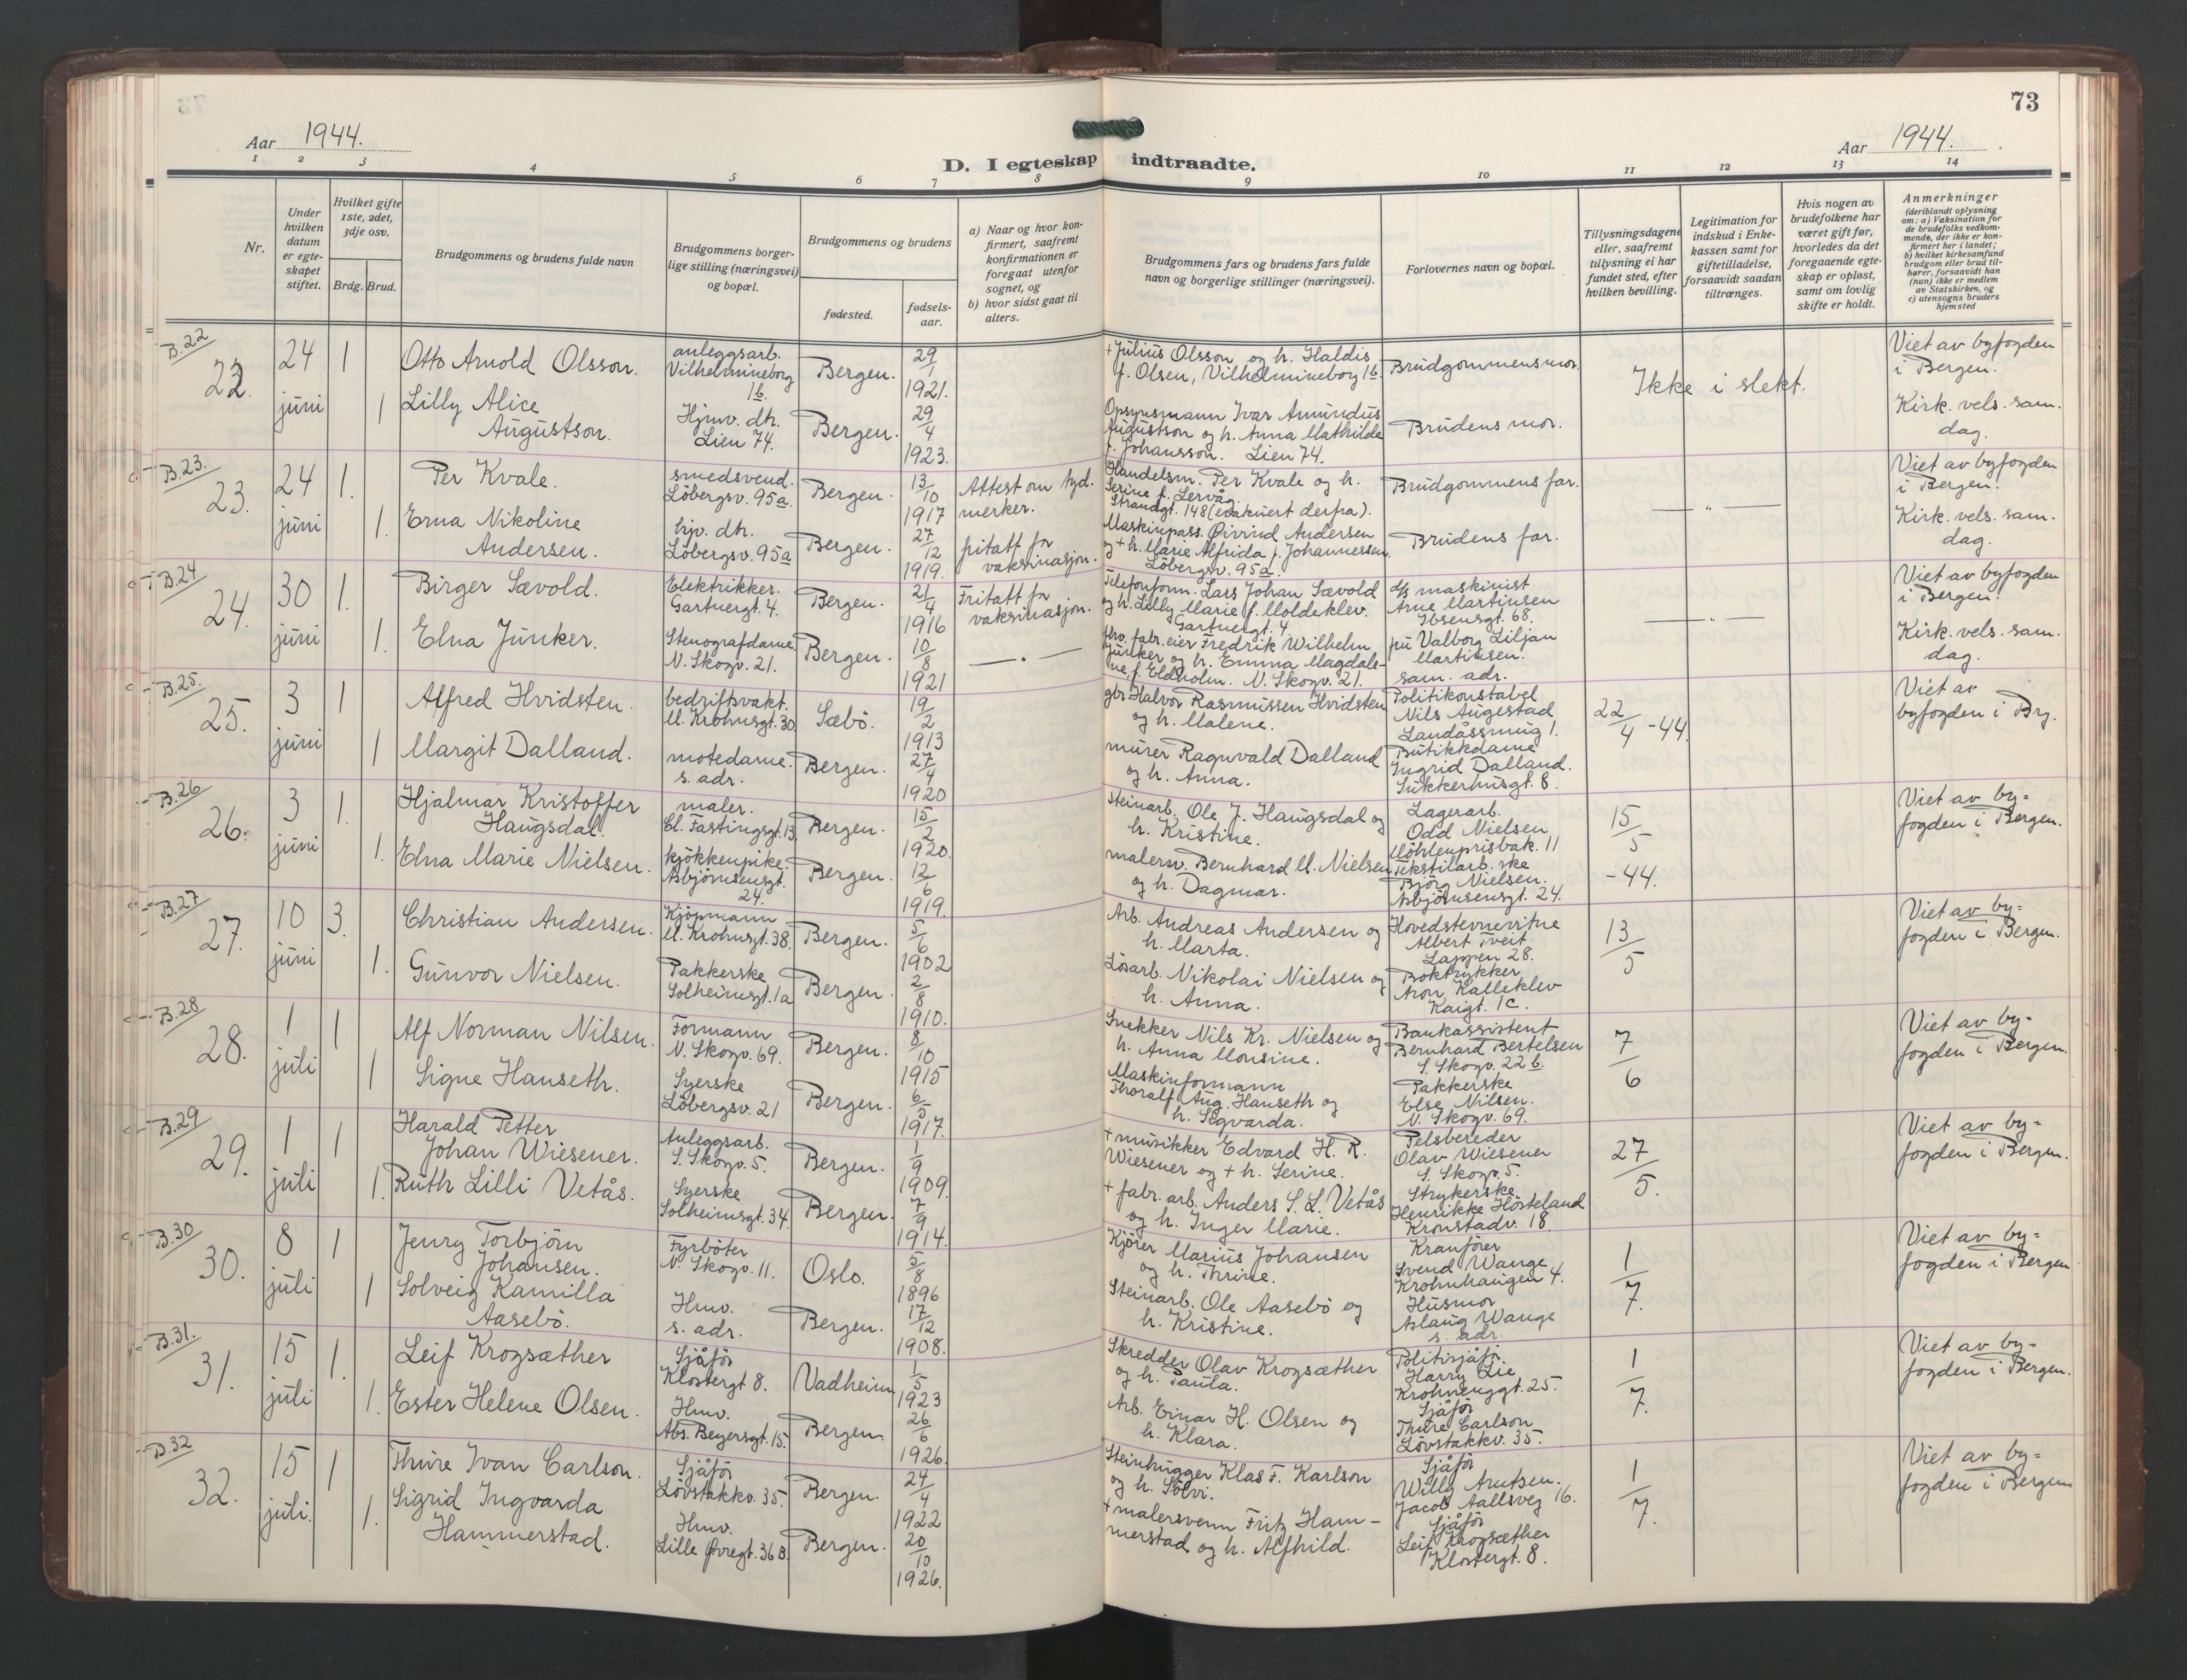 73
Aar 1944.
Aar 1944.
D. I egteskap indtraadte.
1 2 3 4 5 6 7 8 9 10 11 12 13 14
Nr.
Under hvilken datum er egteskapet stiftet.
Hvilket gifte 1ste, 2det, 3dje osv.
Brdg. Brud.
Brudgommens og brudens fulde navn
Brudgommens borgerlige stilling (næringsvei) og bopæl.
Brudgommens og brudens
fødested.
fødselsaar.
a) Naar og hvor konfirmert, saafremt konfirmationen er foregaat utenfor sognet, og
b) hvor sidst gaat til alters.
Brudgommens fars og brudens fars fulde navn og borgerlige stillinger (næringsvei).
Forlovernes navn og bopæl.
Tillysningsdagene eller, saafremt tillysning ei har fundet sted, efter hvilken bevilling.
Legitimation for indskud i Enkekassen samt for giftetilladelse, forsaavidt saadan tiltrænges.
Hvis nogen av brudefolkene har været gift før, hvorledes da det foregaaende egteskap er opløst, samt om lovlig skifte er holdt.
Anmerkninger
(deriblandt oplysning om: a) Vaksination for de brudefolks vedkommende, der ikke er konfirmert her i landet; b) hvilket kirkesamfund brudgom eller brud tilhører, forsaavidt han (hun) ikke er medlem av Statskirken, og c) utensogns bruders hjemsted
B.22
22. 24 juni 1
Otto Arnold Olsson.
anleggsarb. Vilhelmineborg 16.
Bergen. 29/1 1921.
+Julius Olsson og h. Haldis f. Olsen, Vilhelmineborg 16.
Brudgommens mor.
Ikke i slekt.
Viet av byfogden i Bergen.
1 Lilly Alice Augustson.
Hjmv. dtr. Lien 74.
Bergen. 29/4 1923.
Opsynsmann Ivar Amundus Augustson og h. Anna Mathilde f. Johansson. Lien 74.
Brudens mor.
Kirk. vels. sam. dag.
B.23.
23. 24 juni 1.
Per Kvale.
smedsvend. Löbergsv. 95a.
Bergen. 13/10 1917
Attest om tyd. merker.
Handelsm. Per Kvale og h. Serine f. Lervåg. Strandgt. 148 (evakuert derfra).
Brudgommens far.
— " —
Viet av byfogden i Bergen.
1. Erna Nikoline Andersen.
hjv. dtr. Löbergsv. 95a
Bergen. 27/12 1919.
fritatt for vaksinasjon.
Maskinpass. Øivind Andersen og + h. Marie Alfrida f. Johannessen. Löbergsv. 95a.
Brudens far.
Kirk. vels. sam. dag.
B.24
24. 30 juni 1.
Birger Sævold.
Elektrikker. Gartnergt. 4.
Bergen. 21/4 1916
Fritatt for vaksinasjon.
Telefonform. Lars Johan Sævold og h. Lilly Marie f. Moldeklev. Gartnergt. 4
d/s maskinist Arne Martinsen Ibsensgt. 68.
— " —
Viet av byfogden i Bergen.
1. Elna Junker.
Stenografdame N. Skogv. 21.
Bergen. 10/8 1921
— " —
fhv. fabr. eier Fredrik Wilhelm Junker og h. Emma Magdalene f. Eldholm. N. Skogv. 21.
fru Valborg Liljan Martinsen. sam. adr.
Kirk. vels. sam. dag.
B.25.
25. 3 juni 1
Alfred Hvidsten.
bedriftsvakt. M. Krohnsgt. 30.
Sæbö. 19/2 1913
gbr. Halvor Rasmussen Hvidsten og h. Malene.
Politikonstabel Nils Augestad Landåssmug 1.
22/4 -44.
Viet av byfogden i Brg.
1 Margit Dalland.
motedame. s. adr.
Bergen. 27/4 1920
murer Ragnvald Dalland og h. Anna.
Butikkdame Ingrid Dalland. Sukkerhusgt. 8.
B.26
26. 3 juni 1.
Hjalmar Kristoffer Haugsdal.
maler. Cl. Fastingsgt. 13
Bergen. 15/2 1920.
steinarb. Ole J. Haugsdal og h. Kristine.
Lagerarb. Odd Nielsen Möhlenprisbak. 11
15/5 -44.
Viet av byfogden i Bergen.
1. Elna Marie Nielsen.
kjökkenpike. Asbjörnsensgt. 24.
Bergen. 12/6 1919.
malersv. Bernhard M. Nielsen og h. Dagmar.
Tekstilarb.ske Björg Nielsen. Asbjörnsensgt. 24.
B.27
27. 10 juni 3.
Christian Andersen.
Kjöpmann M. Krohnsgt. 38.
Bergen. 5/6 1902
Arb. Andreas Andersen og h. Marta.
Hovedstevnevitne Albert Tveit Lappen 28.
13/5
Viet av byfogden i Bergen.
1. Gunvor Nielsen.
Pakkerske Solheimsgt. 1a
Bergen. 2/8 1910.
Lösarb. Nikolai Nielsen og h. Anna.
Boktrykker Aron Kalleklev Kaigt. 1c.
B.28
28. 1 juli 1
Alf Norman Nilsen.
Formann N. Skogv. 69.
Bergen. 8/10 1915
Snekker Nils Kr. Nielsen og h. Anna Monsine.
Bankassistent Bernhard Bertelsen S. Skogv. 22 b.
7/6
Viet av byfogden i Bergen.
1 Signe Hanseth.
Syerske Löbergsv. 21
Bergen. 6/5 1917.
Maskinformann Thoralf Aug. Hanseth og h. Sigvarda.
Pakkerske Else Nilsen. N. Skogv. 69.
B.29
29. 1 juli 1
Harald Petter Johan Wiesener.
Anleggsarb. S. Skogv. 5.
Bergen. 1/9 1909.
+ musikker Edvard H. R. Wiesener og + h. Serine.
Pelsbereder Olav Wiesener S. Skogv. 5.
27/5.
Viet av byfogden i Bergen.
1. Ruth Lilli Vetås.
Syerske Solheimsgt. 34.
Bergen. 7/9 1914.
+ fabr. arb. Anders S. L. Vetås og h. Inger Marie.
Strykerske Henrikke Hösteland Kronstadv. 18.
B.30
30. 8 juli 1
Jenry Torbjörn Johansen.
Fyrböter N. Skogv. 11.
Oslo. 5/8 1896
Kjörer Marius Johansen og h. Thrine.
Kranförer Svend Wange Krohnhaugen 4.
1/7.
Viet av byfogden i Bergen
1 Solveig Kamilla Aasebö.
Hmv. s. adr.
Bergen. 17/12 1908.
Steinarb. Ole Aasebö og h. Kristine.
Husmor Aslaug Wange s. adr.
B.31.
31. 15 juli 1.
Leif Krogsæther
Sjåför Klostergt 8.
Vadheim. 1/5 1923
Skredder Olav Krogsæther og h. Paula.
Politisjåför. Harry Lie Krohnenggt. 25.
1/7.
Viet av byfogden i Bergen.
1. Ester Helene Olsen.
Hmv. Abs. Beyersgt. 15.
Bergen. 26/6 1926.
Arb. Einar H. Olsen og h. Klara.
Sjåför Thure Carlson Lövstakkv. 35.
B.32
32. 15 juli. 1
Thure Ivan Carlson.
Sjåför Lövstakkv. 35.
Bergen. 24/4 1922
Steinhugger Klas F. Karlson og h. Sölvi.
Sjåför Willy Arntsen. Jacob Aallsveg 16.
1/7.
Viet av byfogden i Bergen
1. Sigrid Ingvarda Hammerstad.
Hmv. Lille Øvregt. 36 B.
Bergen. 20/10 1926.
+ malersvenn Fritz Hammerstad og h. Alfhild.
Sjåför Leif Krogsæther Klostergt. 8.